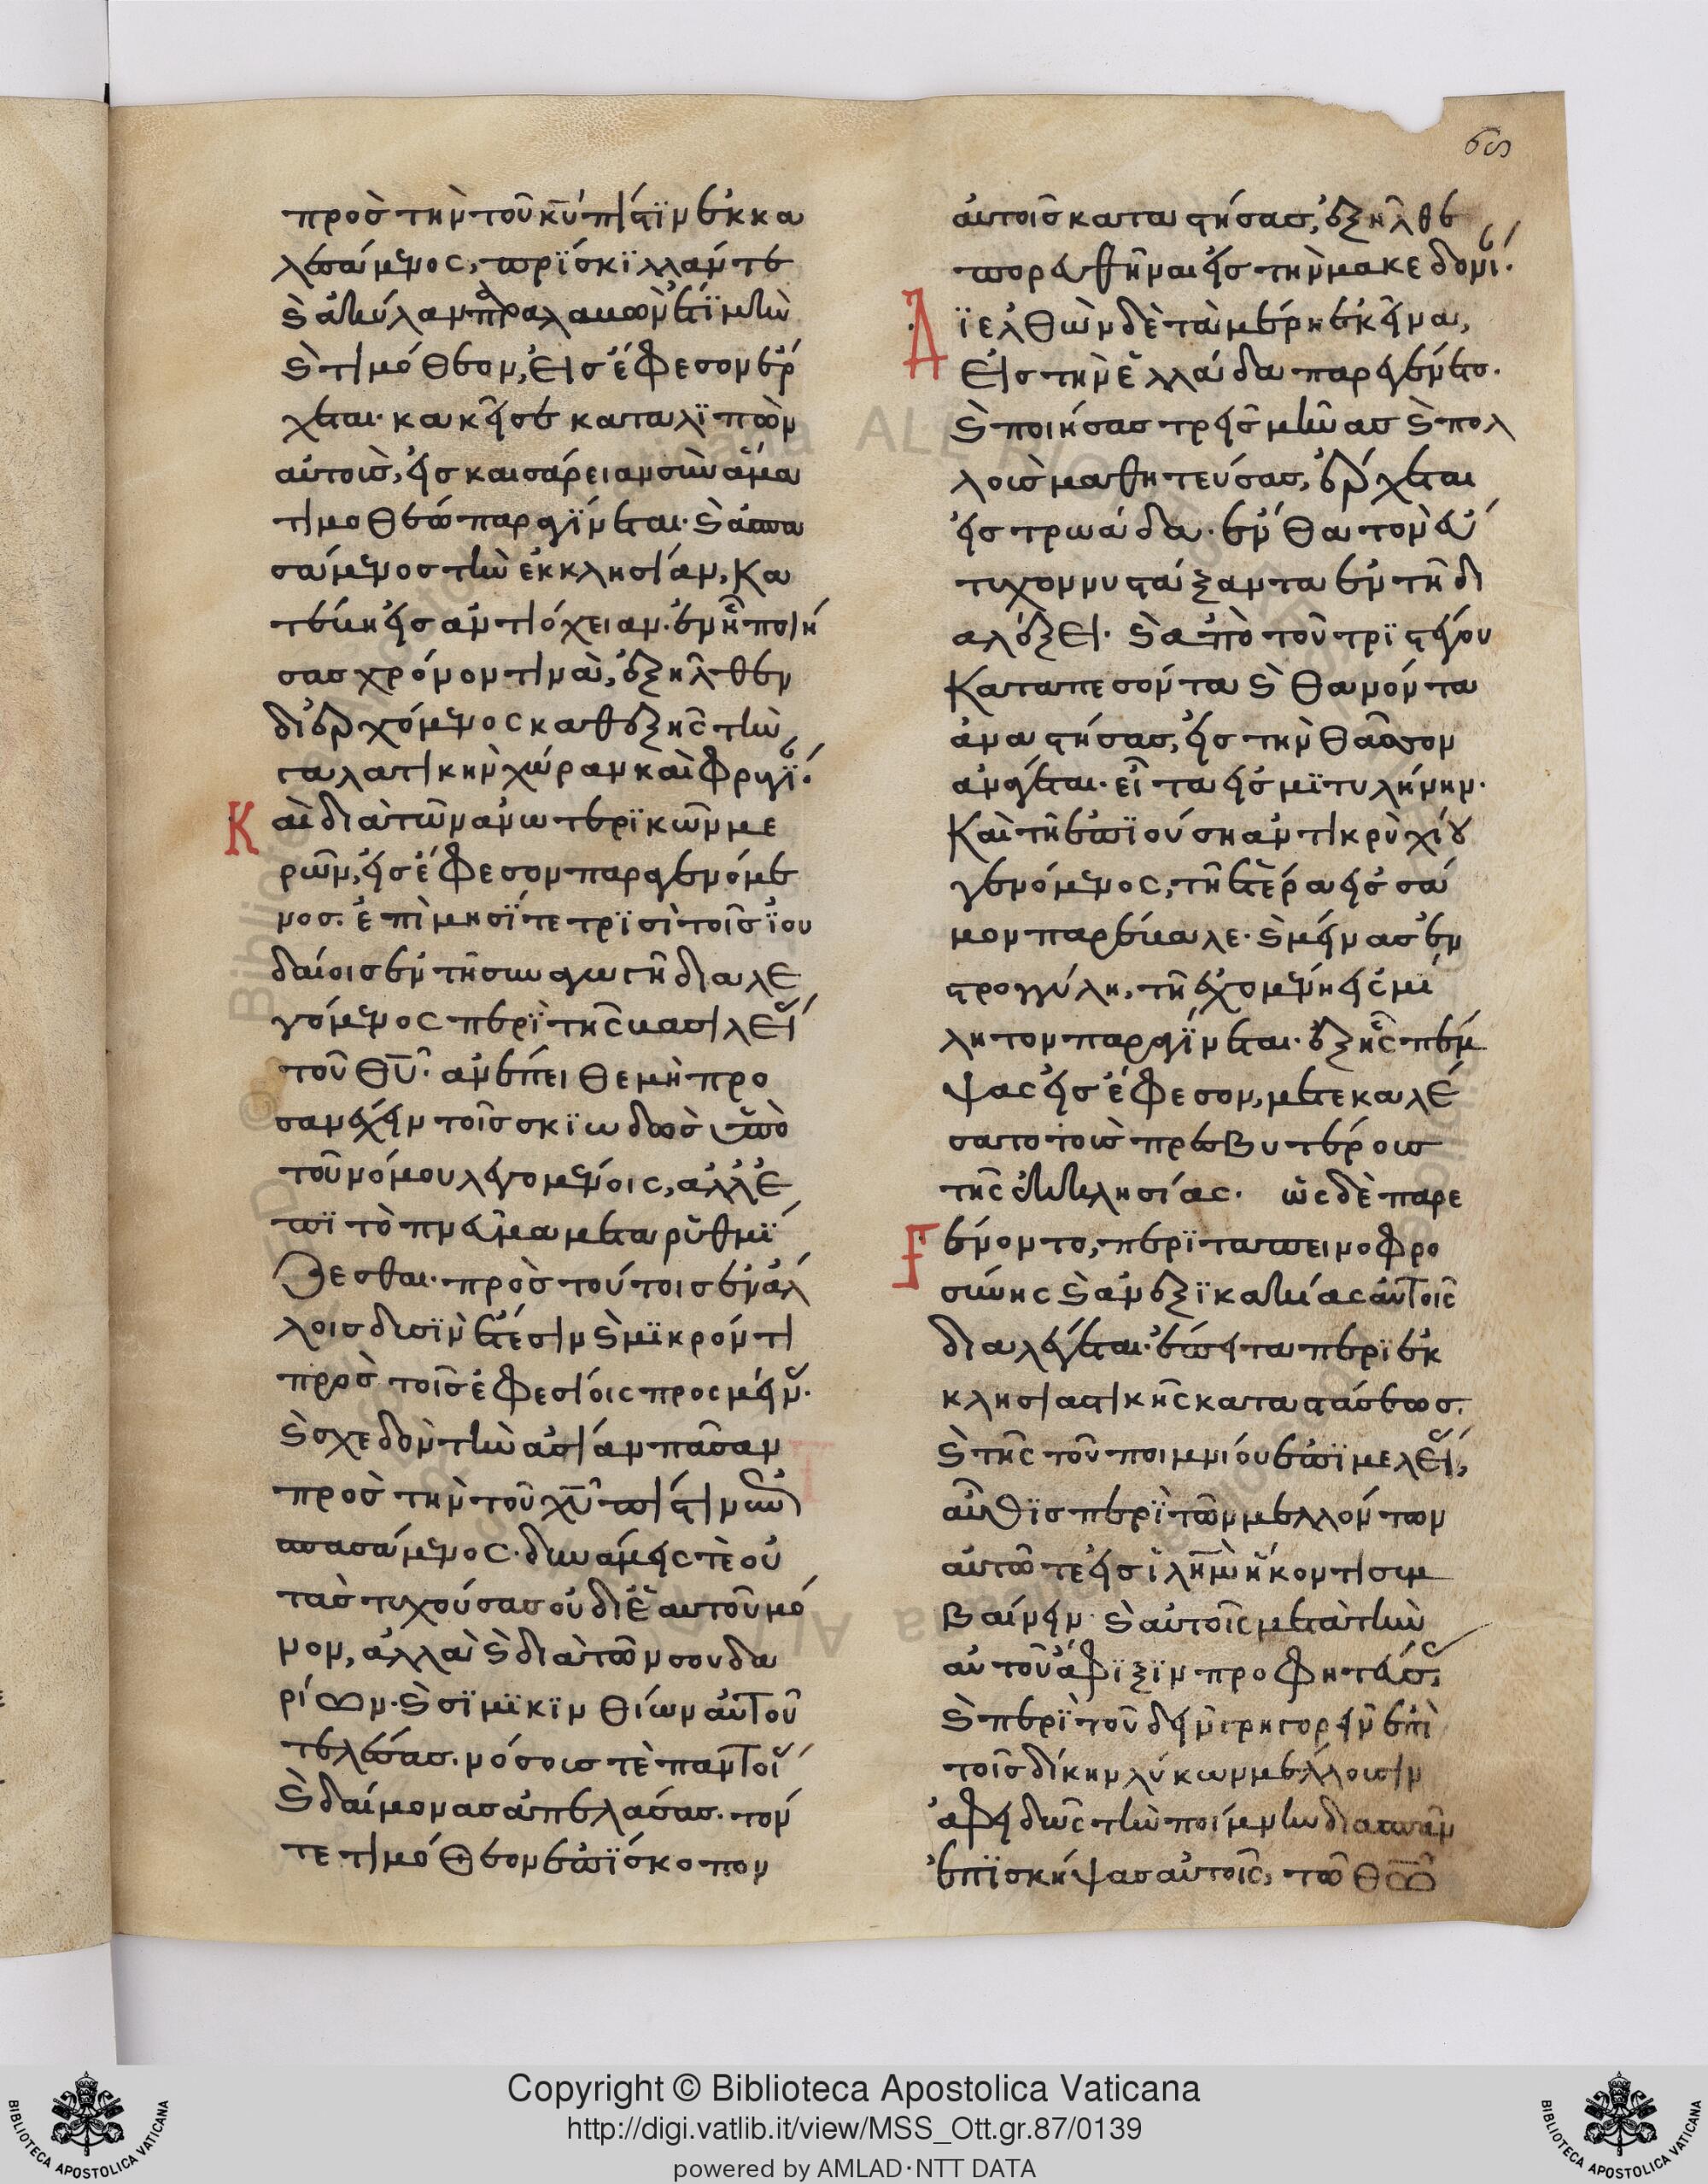 68
πρὸς τὴν τοῦ κῡ πίστϊν ἐκκα
λεσάμενος, πρΐσκϊλλάν τε
κ̀ ἀκύλαν παραλαβὼν ἐκεῖ κ̀
κ̀ τιμόθεον, εἰς ἔφεσον ἔρ
χεται· κακεῖσε καταλϊπὼν
αὐτοὺς, εἰς καισάρειαν σὺν ἅμα
τιμοθέω παραγΐνεται· κ̀ ἀσπα
σάμενος τὴν ἐκκλησίαν, κα
τέβη εἰς ἀντιόχειαν· ἐν ἧ ποιή
σας χρόνον τινὰ, ἐξῆλθεν
διερχόμενος καθεξῆς τὴν
γαλατικὴν χώραν καὶ φρυγΐ·
Καὶ διὰ τῶν ἀνωτερϊκῶν με
ρῶν, εἰς ἔφεσον παραγενόμε
νος· ἐπὶ μησΐ τε τρϊσὶ τοῖς ϊου
δαίοις ἐν τῆ συναγωγῆ διαλε
γόμενος περὶ τῆς βασιλεί
τοῦ θῡ· ἀνέπειθε μὴ προ
σανέχειν τοῖς σκϊώδως ὑπὸ
τοῦ νόμου λεγομένοις, ἀλλ' ἐ
πϊ τὸ πνεῦμα μεταρυθμΐ
ζεσθαι· πρὸς τούτοις ἐν ἄλ
λοις δυσῒν ἔτεσιν κ̀ μϊκρόν τι
πρὸς τοῖς ἐφεσίοις προσμείν·
κ̀ σχεδὸν τὴν ἀσίαν πᾶσαν
πρὸς τὴν τοῦ χῡ πίστιν ἐπι
σπασάμενος· δυνάμεις τὲ οὐ
τὰς τυχούσας οὐ δι' ἑαυτοῦ μό
νον, ἀλλὰ κ̀ διὰ τῶν σουδα
ρίων· κ̀ σϊμϊκϊνθίων αὐτοῦ
τελέσας· νόσους τὲ παντοί
κ̀ δαίμονας ἀπελάσας· τόν
τε τιμόθεον ἐπΐσκοπον
αὐτοῖς καταστήσας, ἐξῆλθε
πορευθῆναι εἰς τὴν μακεδονί·
Δϊελθὼν δὲ τὰ μέρη ἐκεῖνα,
εἰς τὴν ἑλλάδα παραγένετο·
κ̀ ποιήσας τρεῖς μῆνας κ̀ πολ
λοὺς μαθητεύσας, ἔρχεται
εἰς τρωάδα· ἔνθα τὸν εὔ
τυχον νυστάξαντα ἐν τῆ δι
αλέξει· κ̀ ἀπὸ τοῦ τρϊστέγου
καταπεσόντα κ̀ θανόντα
ἀναστήσας, εἰς τὴν θάσον
ἀνάγεται· εἶτα εἰς μϊτυλήνην·
Καὶ τῆ ἐπϊούση ἀντικρὺ χίου
γενόμενος, τῆ ἑτέρα εἰς σά
μον παρέβαλε· κ̀ μείνας ἐν
στρογγύλη, τῆ ἐχομένη εἰς μί
λητον παραγΐνεται· ἐξ ἧς πέμ
ψας εἰς ἔφεσον, μετεκαλέ
σατο τοὺς πρεσβυτέρους
τῆς ἐκκλησίας· ὡς δὲ παρε
γένοντο, περϊ ταπεινοφρο
σύνης κ̀ ἀνεξϊκακίας αὐτοῖς
διαλέγεται· ἔπειτα περϊ ἐκ
κλησιαστικῆς καταστάσεως.
κ̀ τῆς τοῦ ποιμνίου ἐπϊμελεί,
αὖθϊς περῒ τῶν μελλόντων
αὐτῶ τε εἰς ϊλη̄μ ἥκοντι συμ
βαίνειν· κ̀ αὐτοῖς μετὰ τὴν
αὐτοῦ ἄφϊξϊν προφητεύσ,
κ̀ περῒ τοῦ δεῖν γρηγορεῖν ἐπὶ
τοῖς δίκην λύκων μέλλουσιν
ἀφειδῶς τὴν ποίμνην διασπᾶν
ἐπϊσκήψας αὐτοῖς, τῶ θω̄
Copyright © Biblioteca Apostolica Vaticana
http://digi.vatlib.it/view/MSS_Ott.gr.87/0139
powered by AMLAD·NTT DATA
BIBLIOTECA APOSTOLICA VATICANA
BIBLIOTECA APOSTOLICA VATICANA